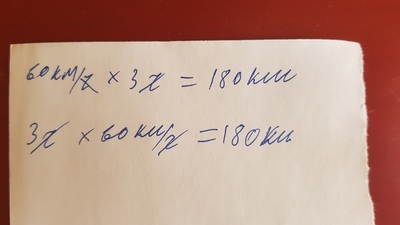 60км/ч × 3ч = 180км
3ч × 60км/ч = 180км